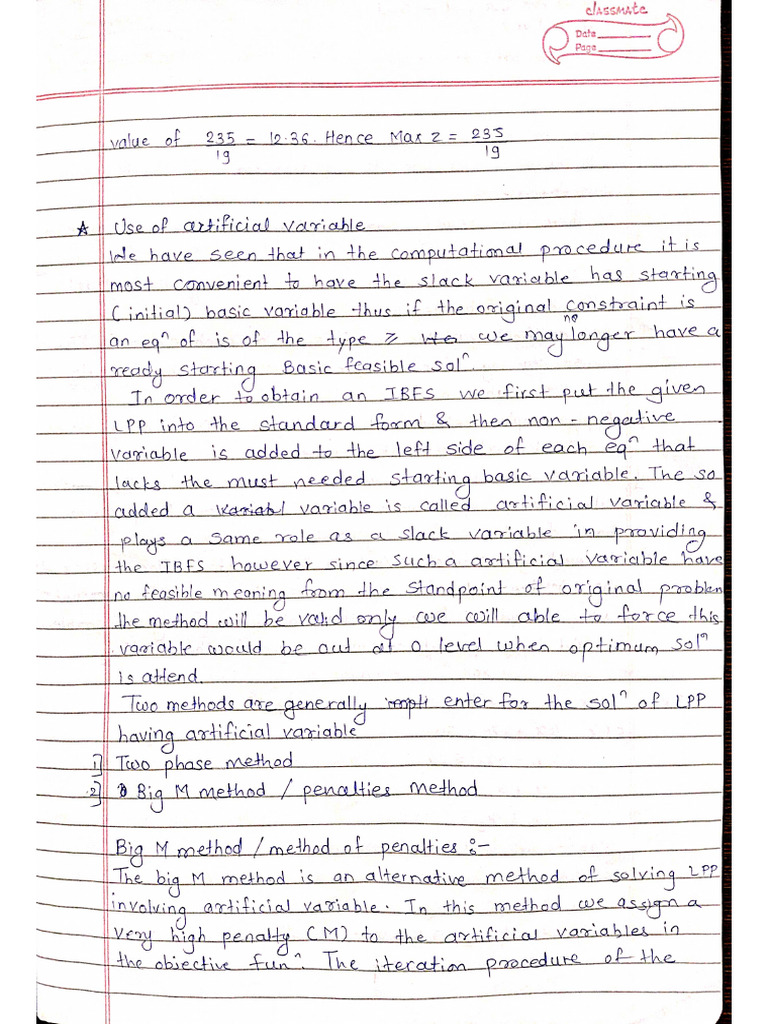 classmate
Date
Page
value of 235/19 = 12.36. Hence Max z = 235/19
★ Use of artificial variable
We have seen that in the computational procedure it is
most convenient to have the slack variable has starting
(initial) basic variable thus if the original constraint is
an eqⁿ of is of the type ≥ we may no longer have a
ready starting Basic feasible solⁿ.
In order to obtain an IBFS we first put the given
LPP into the standard form & then non-negative
variable is added to the left side of each eqⁿ that
lacks the must needed starting basic variable. The so
added a variable is called artificial variable &
plays a same role as a slack variable in providing
the IBFS however since such a artificial variable have
no feasible meaning from the standpoint of original problem
the method will be valid only we will able to force this
variable would be out at 0 level when optimum solⁿ
is attend.
Two methods are generally enter for the solⁿ of LPP
having artificial variable
1] Two phase method
2] Big M method / penalties method
Big M method / method of penalties :-
The big M method is an alternative method of solving LPP
involving artificial variable. In this method we assign a
very high penalty (M) to the artificial variables in
the objective funⁿ. The iteration procedure of the